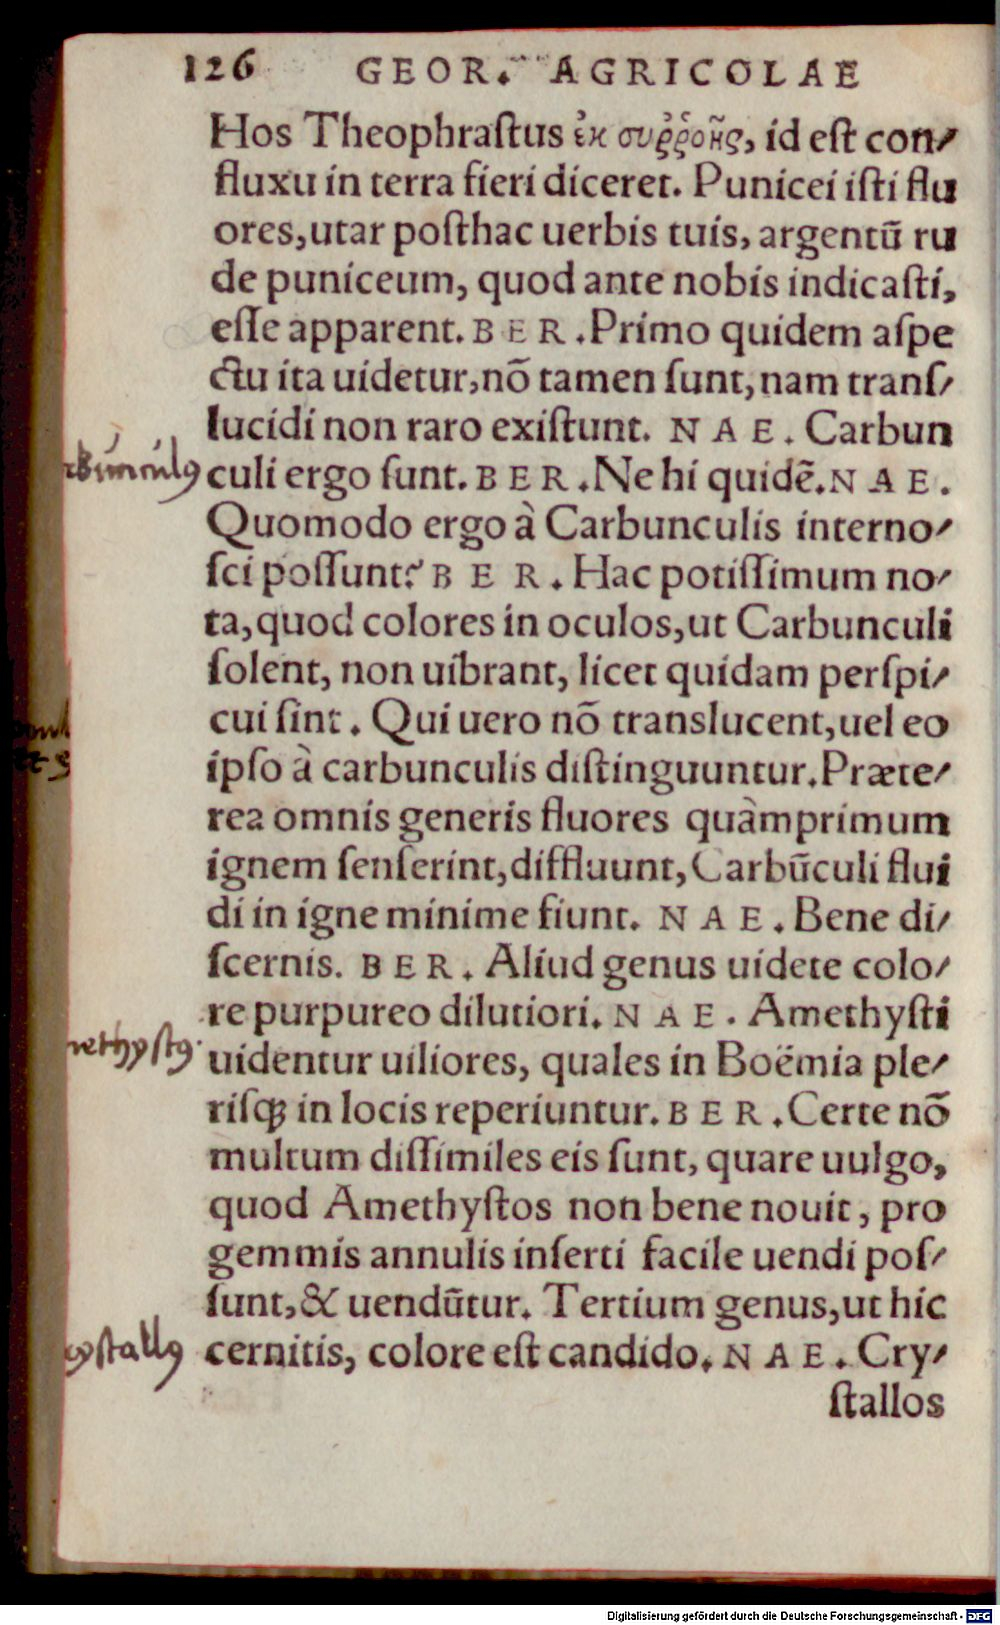 126 GEOR. AGRICOLAE
Hos Theophraſtus ἐκ συῤῥοῆς, id eſt con⸗
fluxu in terra fieri diceret. Punicei iſti flu
ores, utar poſthac uerbis tuis, argentū ru
de puniceum, quod ante nobis indicaſti,
eſſe apparent. BER. Primo quidem aſpe
ctu ita uidetur, nō tamen ſunt, nam tranſ⸗
lucidi non raro exiſtunt. NAE. Carbun
culi ergo ſunt. BER. Ne hi quidē. NAE.
Quomodo ergo à Carbunculis interno⸗
ſci poſſunt? BER. Hac potiſſimum no⸗
ta, quod colores in oculos, ut Carbunculi
ſolent, non uibrant, licet quidam perſpi⸗
cui ſint. Qui uero nō translucent, uel eo
ipſo à carbunculis diſtinguuntur. Præte⸗
rea omnis generis fluores quàmprimum
ignem ſenſerint, diffluunt, Carbūculi flui
di in igne minime fiunt. NAE. Bene di⸗
ſcernis. BER. Aliud genus uidete colo⸗
re purpureo dilutiori. NAE. Amethyſti
rethyſtꝰ
uidentur uiliores, quales in Boëmia ple⸗
riſq; in locis reperiuntur. BER. Certe nō
multum diſſimiles eis ſunt, quare uulgo,
quod Amethyſtos non bene nouit, pro
gemmis annulis inſerti facile uendi poſ⸗
ſunt, & uendūtur. Tertium genus, ut hic
yſtallꝰ
cernitis, colore eſt candido. NAE. Cry⸗
ſtallos
Digitalisierung gefördert durch die Deutsche Forschungsgemeinschaft - DFG